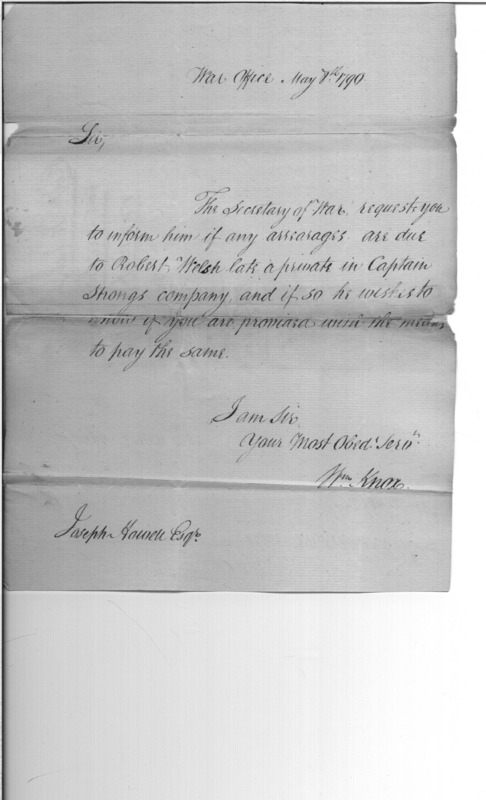 War Office May 8th 1790
Sir,
The Secretary of War requests you
to inform him if any arrearages are due
to Robert Welsh late a private in Captain
Strongs company, and if so he wishes to
know if you are provided with the means
to pay the same.
I am Sir
Your Most Obedt Servt
Wm Knox.
Joseph Howell Esqr